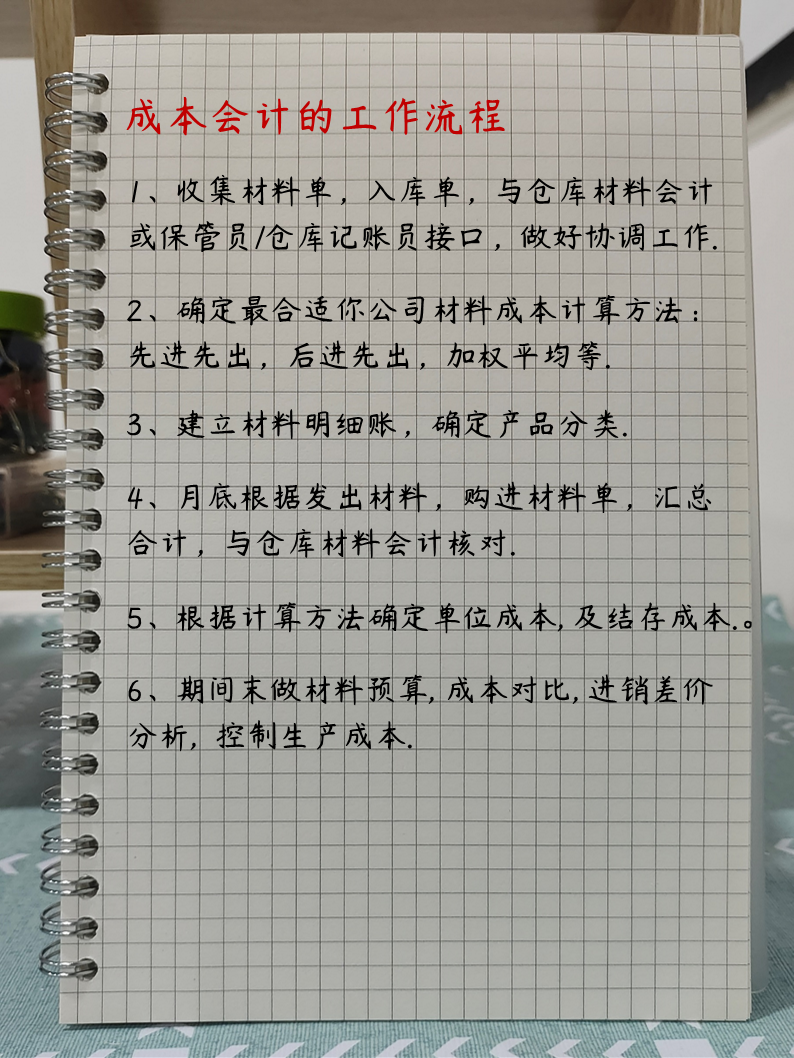 成本会计的工作流程
1、收集材料单，入库单，与仓库材料会计
或保管员/仓库记账员接口，做好协调工作.
2、确定最合适你公司材料成本计算方法：
先进先出，后进先出，加权平均等.
3、建立材料明细账，确定产品分类.
4、月底根据发出材料，购进材料单，汇总
合计，与仓库材料会计核对.
5、根据计算方法确定单位成本,及结存成本.。
6、期间末做材料预算,成本对比,进销差价
分析,控制生产成本.